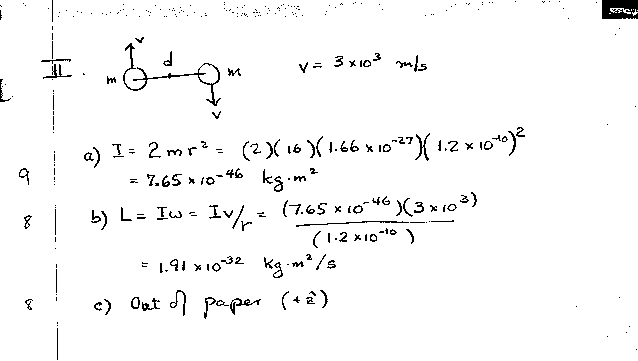 II.
v
d
m
m
v = 3 × 10³ m/s
v
a) I = 2 m r² = (2)(16)(1.66 × 10⁻²⁷)(1.2 × 10⁻¹⁰)²
9
= 7.65 × 10⁻⁴⁶ kg·m²
8
b) L = Iω = Iv/r = (7.65 × 10⁻⁴⁶)(3 × 10³)
(1.2 × 10⁻¹⁰)
= 1.91 × 10⁻³² kg·m²/s
8
c) Out of paper (+ẑ)